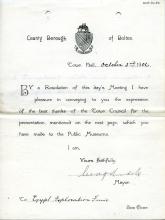 County Borough of Bolton.
Town Hall, October 3rd 1906.
BY a Resolution of this day's Meeting I have
pleasure in conveying to you the expression
of the best thanks of the Town Council for the
presentation, mentioned on the next page, which you
have made to the Public Museums.
I am,
Yours faithfully,
Mayor.
To Egypt Exploration Fund
See Over